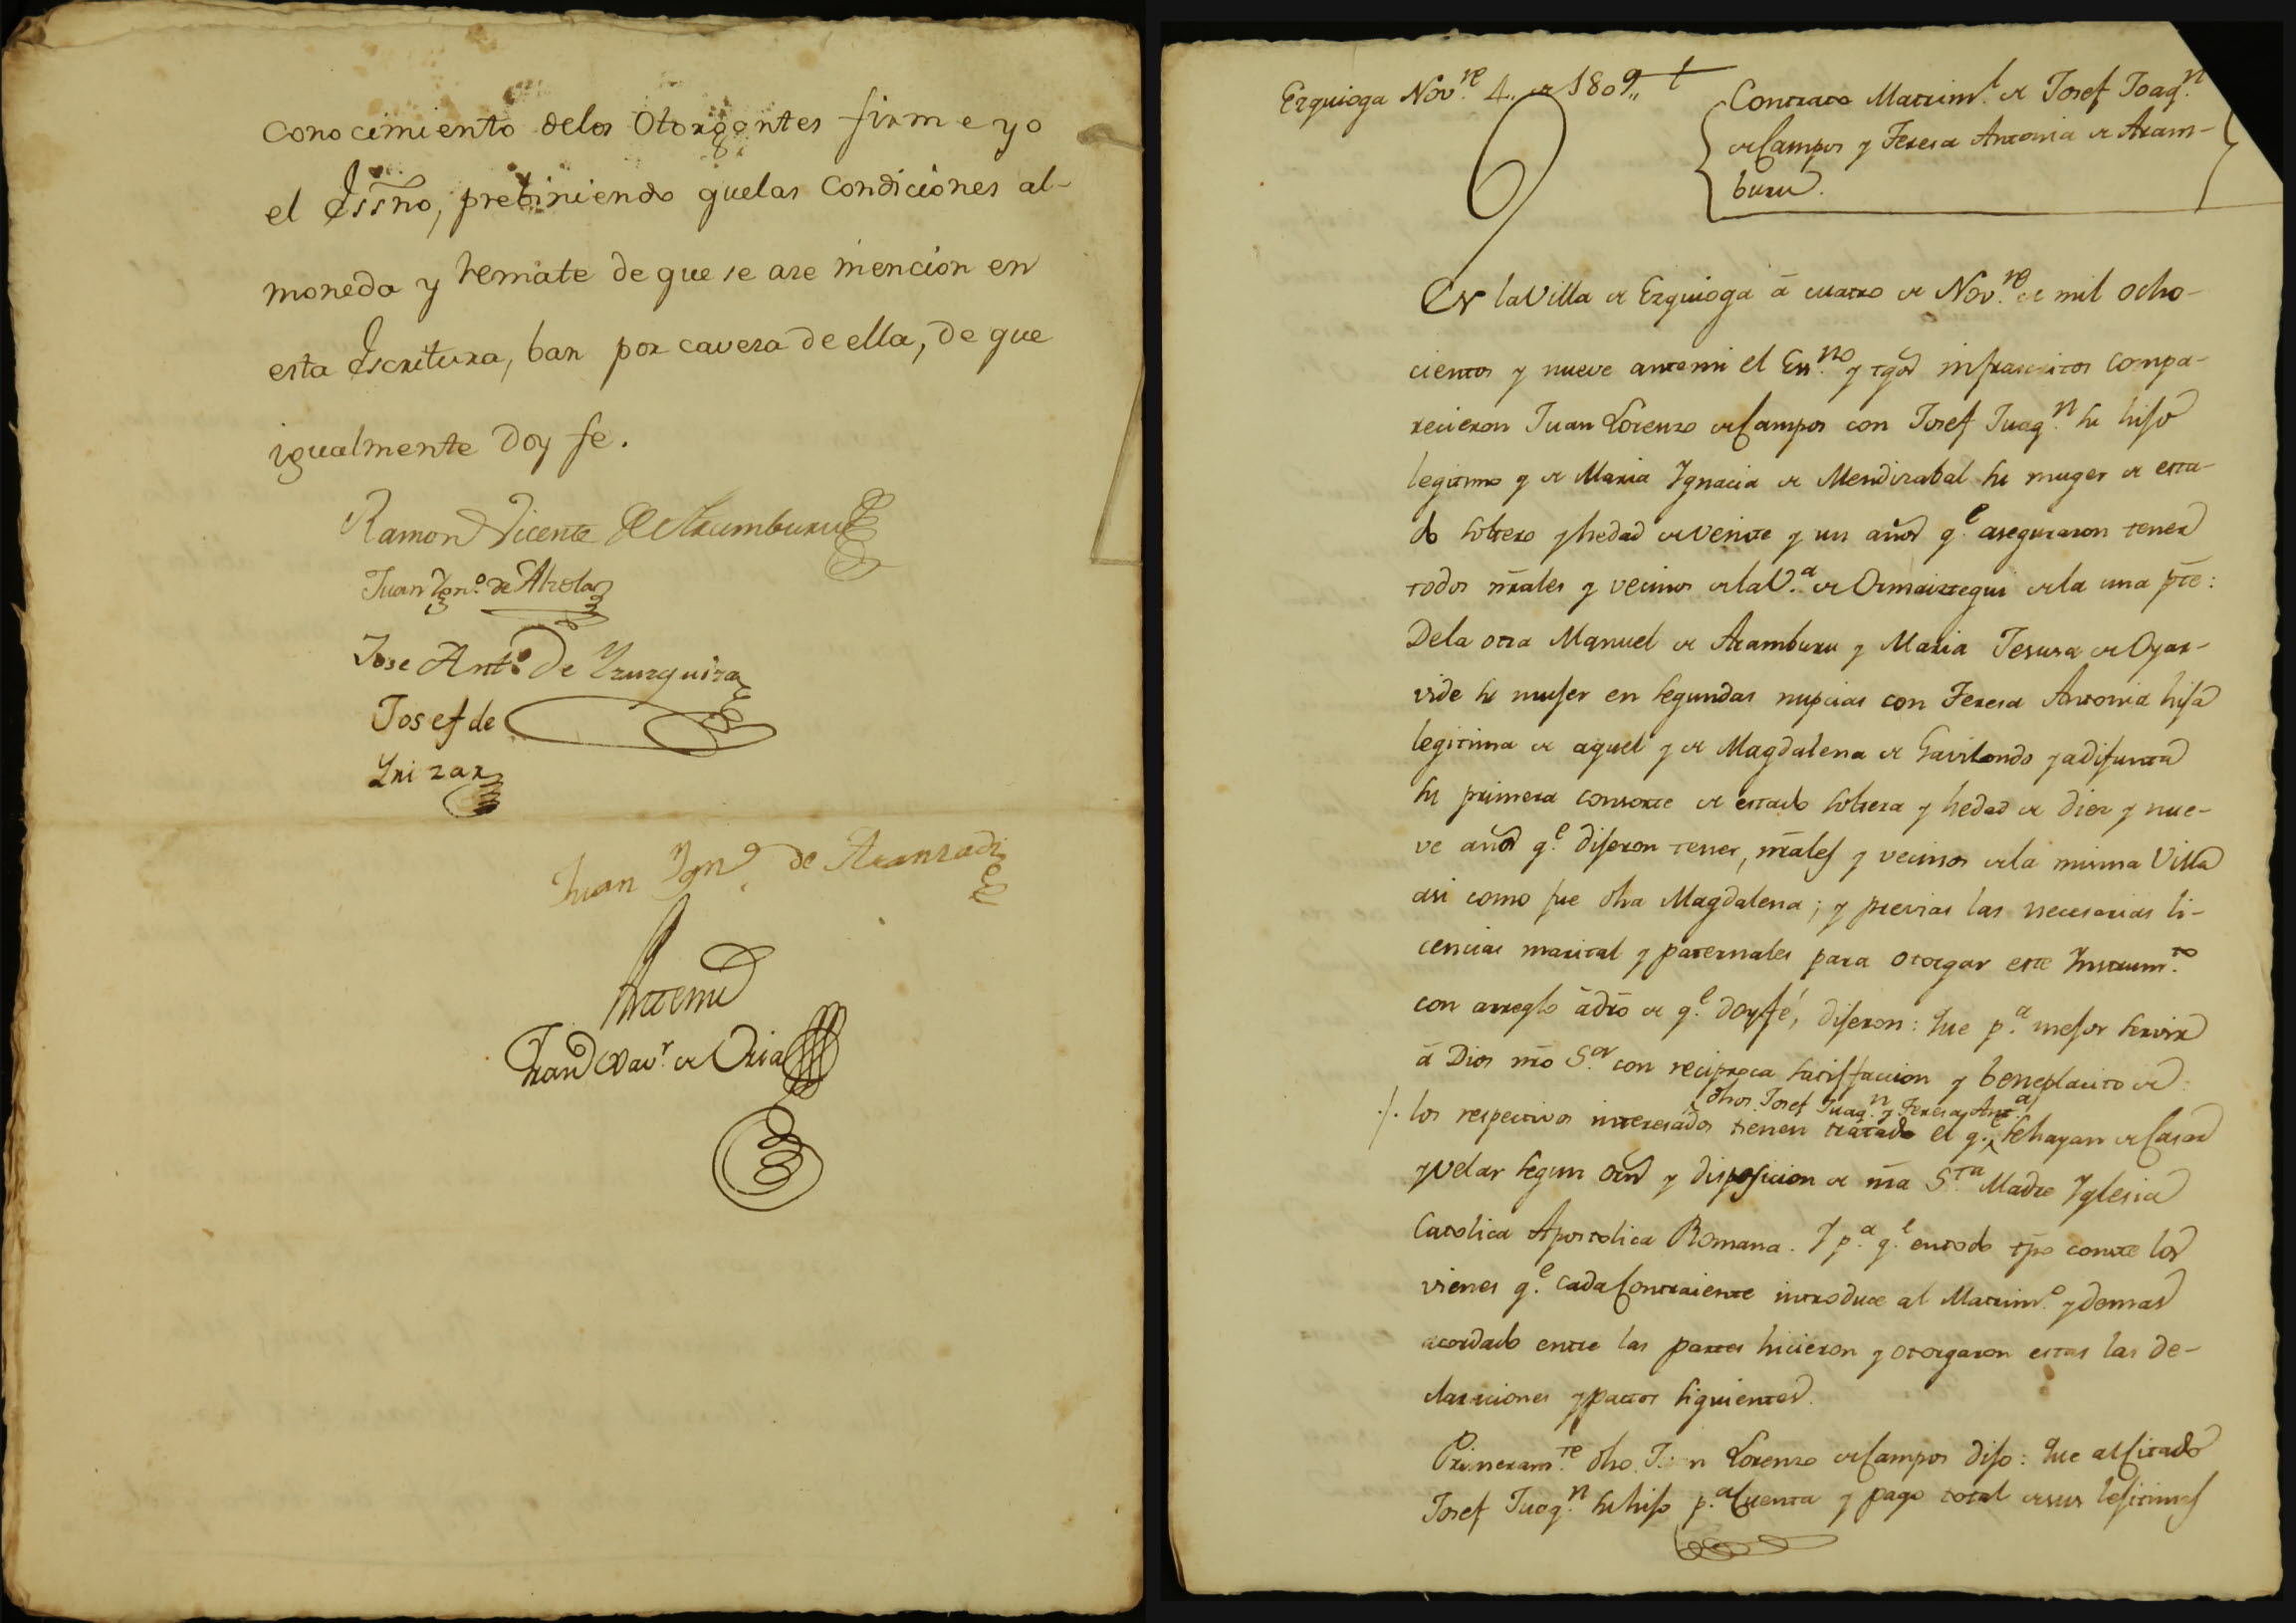 conocimiento delos Otorgantes firme yo
el Essno, prebiniendo quelas Condiciones al-
moneda y remate de que se aze mencion en
esta Escritura, ban por cavera de ella, de que
igualmente Doy fe.
Ramon Vicente de Aramburu
Juan Ygn.o de Alzola
Jose Ant.o De Yzurquiza
Josef de
Yrizar
Juan Ygn.o de Aranzadi
Antemi
Fran.co Xav.r de Oria
Ezquioga Nov.re 4,, de 1809,, t
Contrato Matrim.l de Josef Joaq.n
de Campos y Teresa Antonia de Aram-
buru.
En la Villa de Ezquioga á cuatro de Nov.re de mil ocho-
cientos y nueve antemi el Ess.no y tgos infrascritos compa-
recieron Juan Lorenzo de Campos con Josef Juaq.n su hijo
legitimo y de Maria Ygnacia de Mendizabal su muger de esta-
do soltero y hedad de veinte y un años q.e aseguraron tener
todos nrãles y vecinos de la V.a de Ormaiztegui de la una pte:
Dela otra Manuel de Aramburu y Maria Jesusa de Oyar-
vide su mujer en segundas nupcias con Teresa Antonia hija
legitima de aquel y de Magdalena de Gavilondo ya difunta
su primera consorte de estado soltera y hedad de diez y nue-
ve años q.e dijeron tener, nrãles y vecinos de la misma Villa
asi como fue dha Magdalena; y previas las necesarias li-
cencias marital y paternales para otorgar este Instrum.to
con arreglo á dro de q.e doy fé, dijeron: Que p.a mejor servir
á Dios nro S.or con reciproca satisfaccion y beneplacito de
dhos Josef Juaq.n y Teresa Ant.a
los respectivos interesados tienen tratado el q.e se hayan de Casar
y Velar segun orñ y disposicion de nra S.ta Madre Yglesia
Catolica Apostolica Romana. Y p.a q.e en todo tpo conste los
vienes q.e cada Contraiente introduce al Matrim.o y demas
acordado entre las partes hicieron y otorgaron estas las de-
claraciones y pactos siguientes.
Primeram.te dho Juan Lorenzo de Campos dijo: Que al Citado
Josef Juaq.n su hijo p.a Cuenta y pago total de sus lejitimas